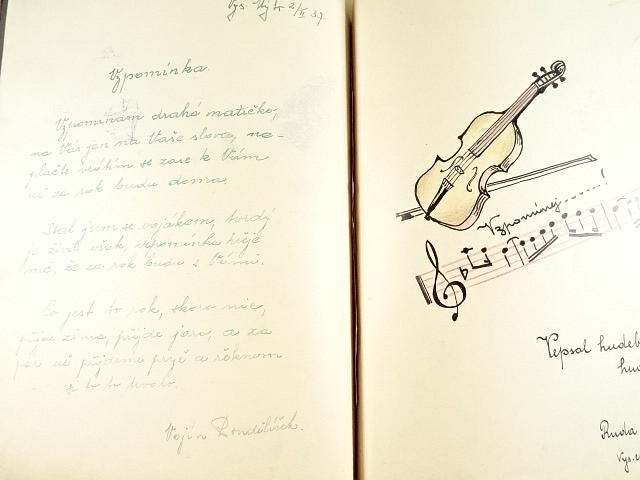 Vys. Mýto 2/II 37
Vzpomínka.
Vzpomínám drahá matičko,
na Vás jen na Vaše slova, ne-
plačte vrátím se zase k Vám
už za rok budu doma.
Stal jsem se vojákem, tvrdý
je život však, vzpomínka hřeje
mně, že za rok budu s Vámi.
Co jest to rok, skoro nic,
přijde zima, přijde jaro, a za
pár už půjdeme pryč a řeknem
si to to
Vojín
Vzpomínej......!
Vepsal hudeb
hud
Ruda
Vys.